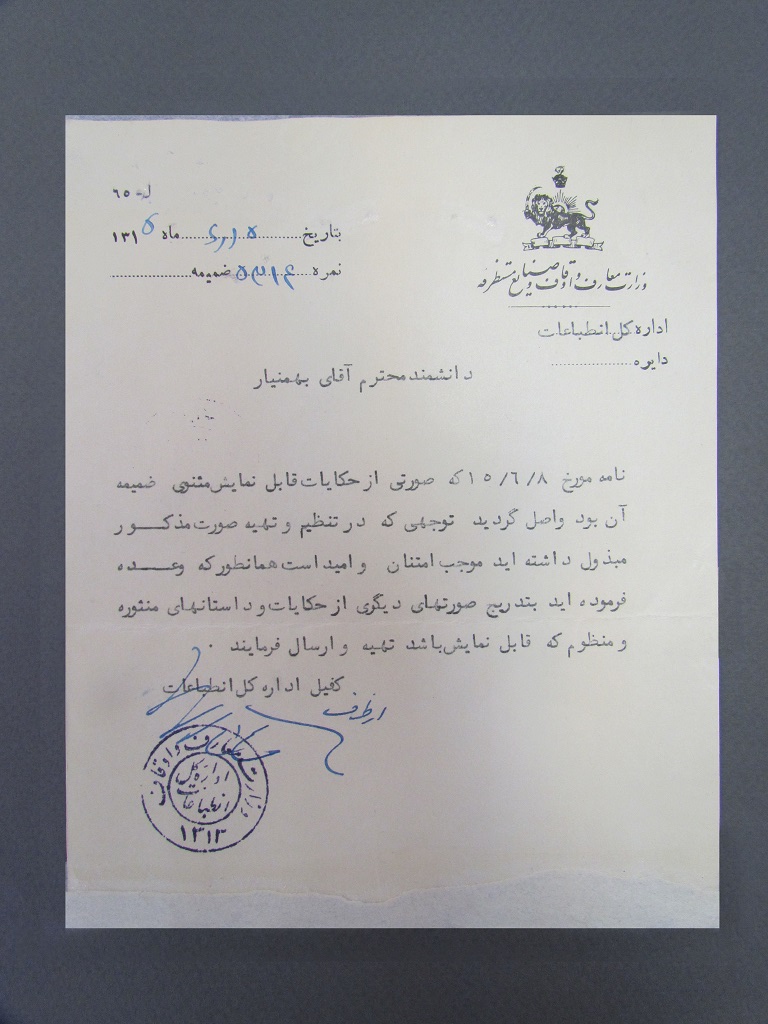 وزارت معارف و اوقاف و صنایع مستظرفه
اداره کل انطباعات
دایره
ل - ٦٥
بتاریخ ماه ۱۳۱۵
نمره ضمیمه
دانشمند محترم آقای بهمنیار
نامه مورخ ۱۵/۶/۸ که صورتی از حکایات قابل نمایش مثنوی ضمیمه
آن بود واصل گردید توجهی که در تنظیم و تهیه صورت مذکور
مبذول داشته اید موجب امتنان و امید است همانطور که وعده
فرموده اید بتدریج صورتهای دیگری از حکایات و داستانهای منثوره
و منظوم که قابل نمایش باشد تهیه و ارسال فرمایند .
کفیل اداره کل انطباعات
از طرف
وزارت معارف و اوقاف
اداره کل
انطباعات
۱۳۱۳